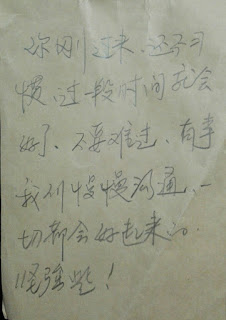 你刚过来、还不习
惯、过一段时间就会
好了、不要难过、有事
我们慢慢沟通、一
切都会好起来的.
坚强些!